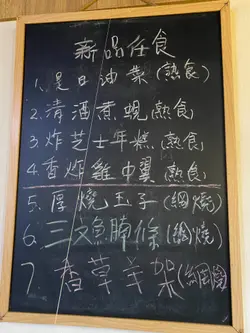 新品任食
1.是日油菜(熟食)
2.清酒煮蜆(熟食)
3.炸芝士年糕(熟食)
4.香炸雞中翼(熟食)
5.厚燒玉子(網燒)
6.三文魚腩條(網燒)
7.香草羊架(網燒)